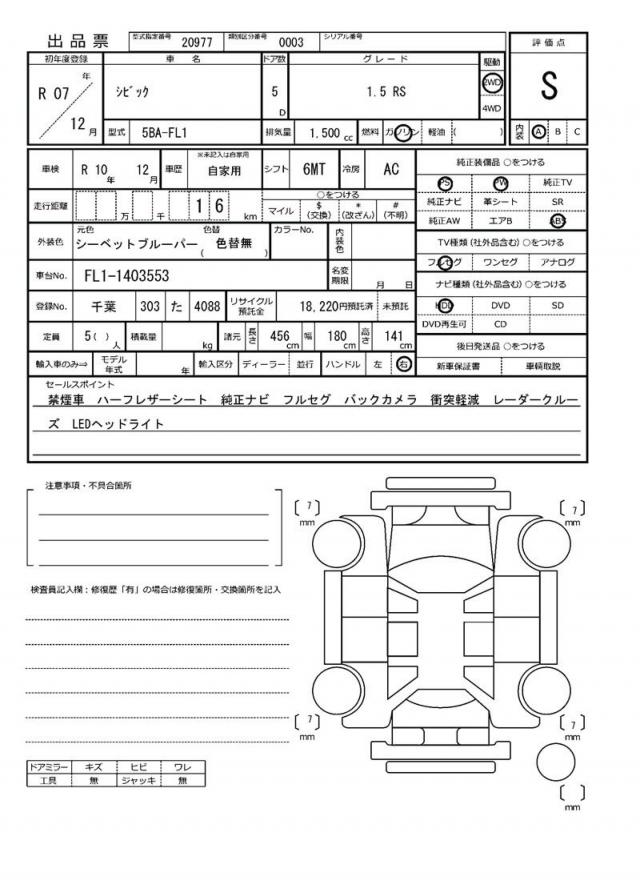 出品票 型式指定番号 20977 類別区分番号 0003 シリアル番号
評価点
S
内装 A B C
初年度登録 車名 ドア数 グレード 駆動
R 07 年 12 月 シビック 5 D 1.5 RS 2WD 4WD
型式 5BA-FL1 排気量 1.500 cc 燃料 ガソリン 軽油 ( )
車検 R 10 年 12 月 車歴 ※未記入は自家用 自家用 シフト 6MT 冷房 AC
走行距離 万 千 1 6 km ○をつける
マイル $ (交換) * (改ざん) # (不明)
外装色 元色 シーベットブルーパー 色替 ( 色替無 ) カラーNo. 内装色
車台No. FL1-1403553 名変期限 月 日
登録No. 千葉 303 た 4088 リサイクル預託金 18,220円預託済 未預託
定員 5( ) 人 積載量 kg 諸元 長さ 456 cm 幅 180 cm 高さ 141 cm
輸入車のみ⇒ モデル年式 年 輸入区分 ディーラー 並行 ハンドル 左 右
純正装備品 ○をつける
PS PW 純正TV
純正ナビ 革シート SR
純正AW エアB ABS
TV種類(社外品含む) ○をつける
フルセグ ワンセグ アナログ
ナビ種類(社外品含む) ○をつける
HDD DVD SD
DVD再生可 CD
後日発送品 ○をつける
新車保証書 車輌取説
セールスポイント
禁煙車 ハーフレザーシート 純正ナビ フルセグ バックカメラ 衝突軽減 レーダークルー
ズ LEDヘッドライト
注意事項・不具合箇所
検査員記入欄：修復歴「有」の場合は修復箇所・交換箇所を記入
[ 7 ] mm
[ 7 ] mm
[ 7 ] mm
[ 7 ] mm
[ ] mm
ドアミラー キズ ヒビ ワレ
工具 無 ジャッキ 無